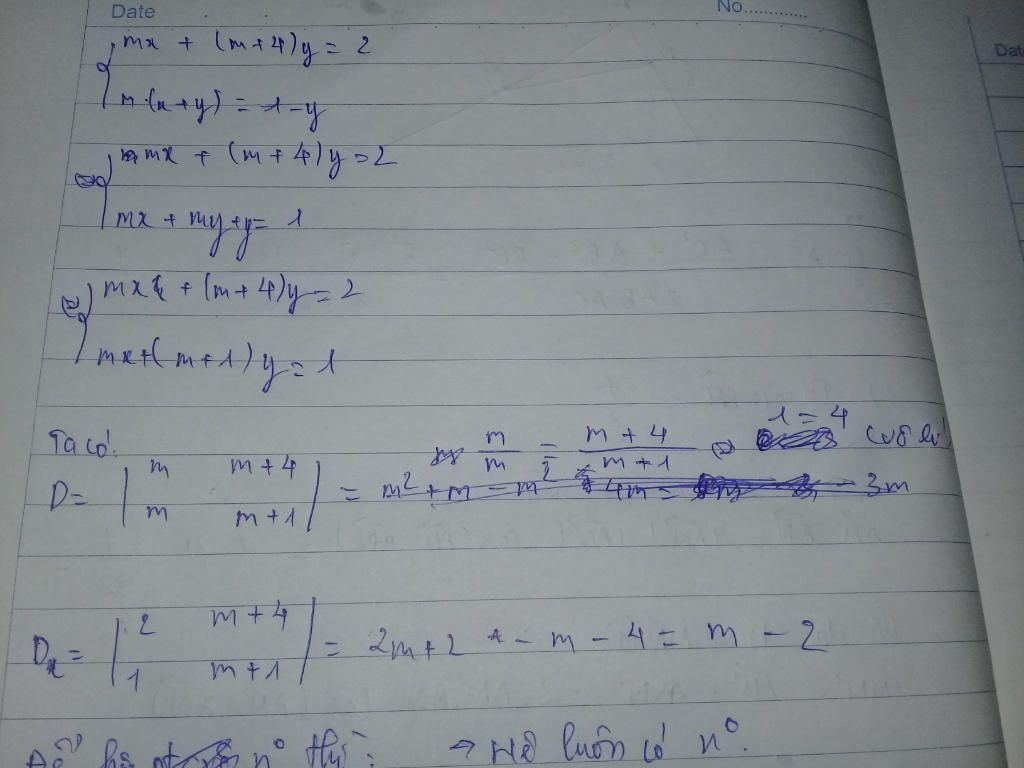 Date No.............
Date
mx + (m+4)y = 2
m(x+y) = 1-y
⇔ mx + (m+4)y = 2
mx + my + y = 1
⇔ mx + (m+4)y = 2
mx + (m+1)y = 1
Ta có: m/m = (m+4)/(m+1) ⇔ 1 = 4 (vô lý)
D = | m m+4 |
| m m+1 | = m² + m - m² - 4m = -3m
Dx = | 2 m+4 |
| 1 m+1 | = 2m + 2 - m - 4 = m - 2
Để hệ n° thì: → Hệ luôn có n°.